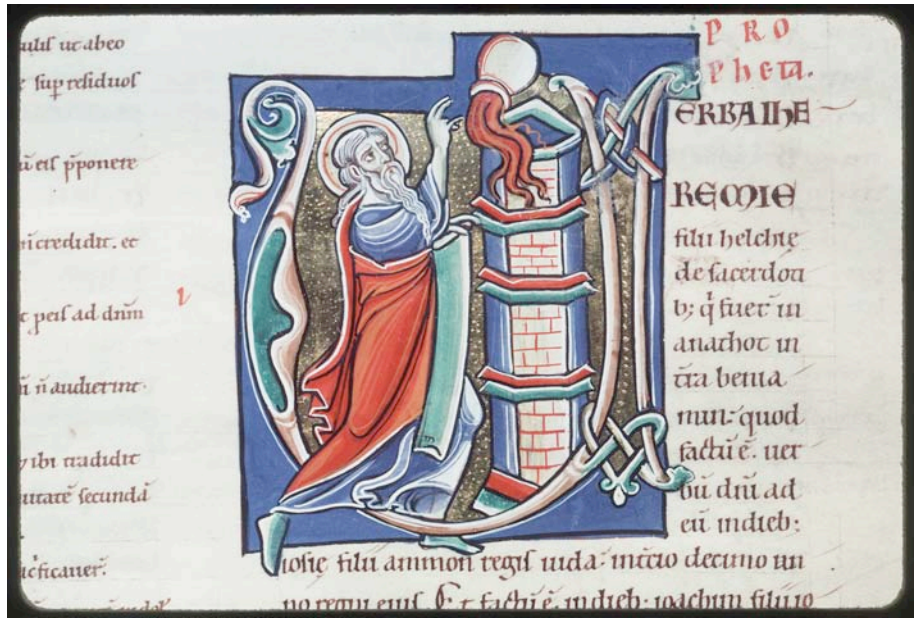 ulis ut abeo
sup residuos
eis pponere
credidit. et
peis ad dnm
n audierint.
ibi tradidit
secunda
ficauer.
PRO
pheta.
ERBA IHE
REMIE
filii helchie
de sacerdoti
b; q fuer in
anathot in
tra benia
min. quod
factu e. uer
bu dni ad
eu in dieb:
iosie filii ammon regis iuda. in tcio decimo an
no regni eius. Et factu e. in dieb. ioachim filii io